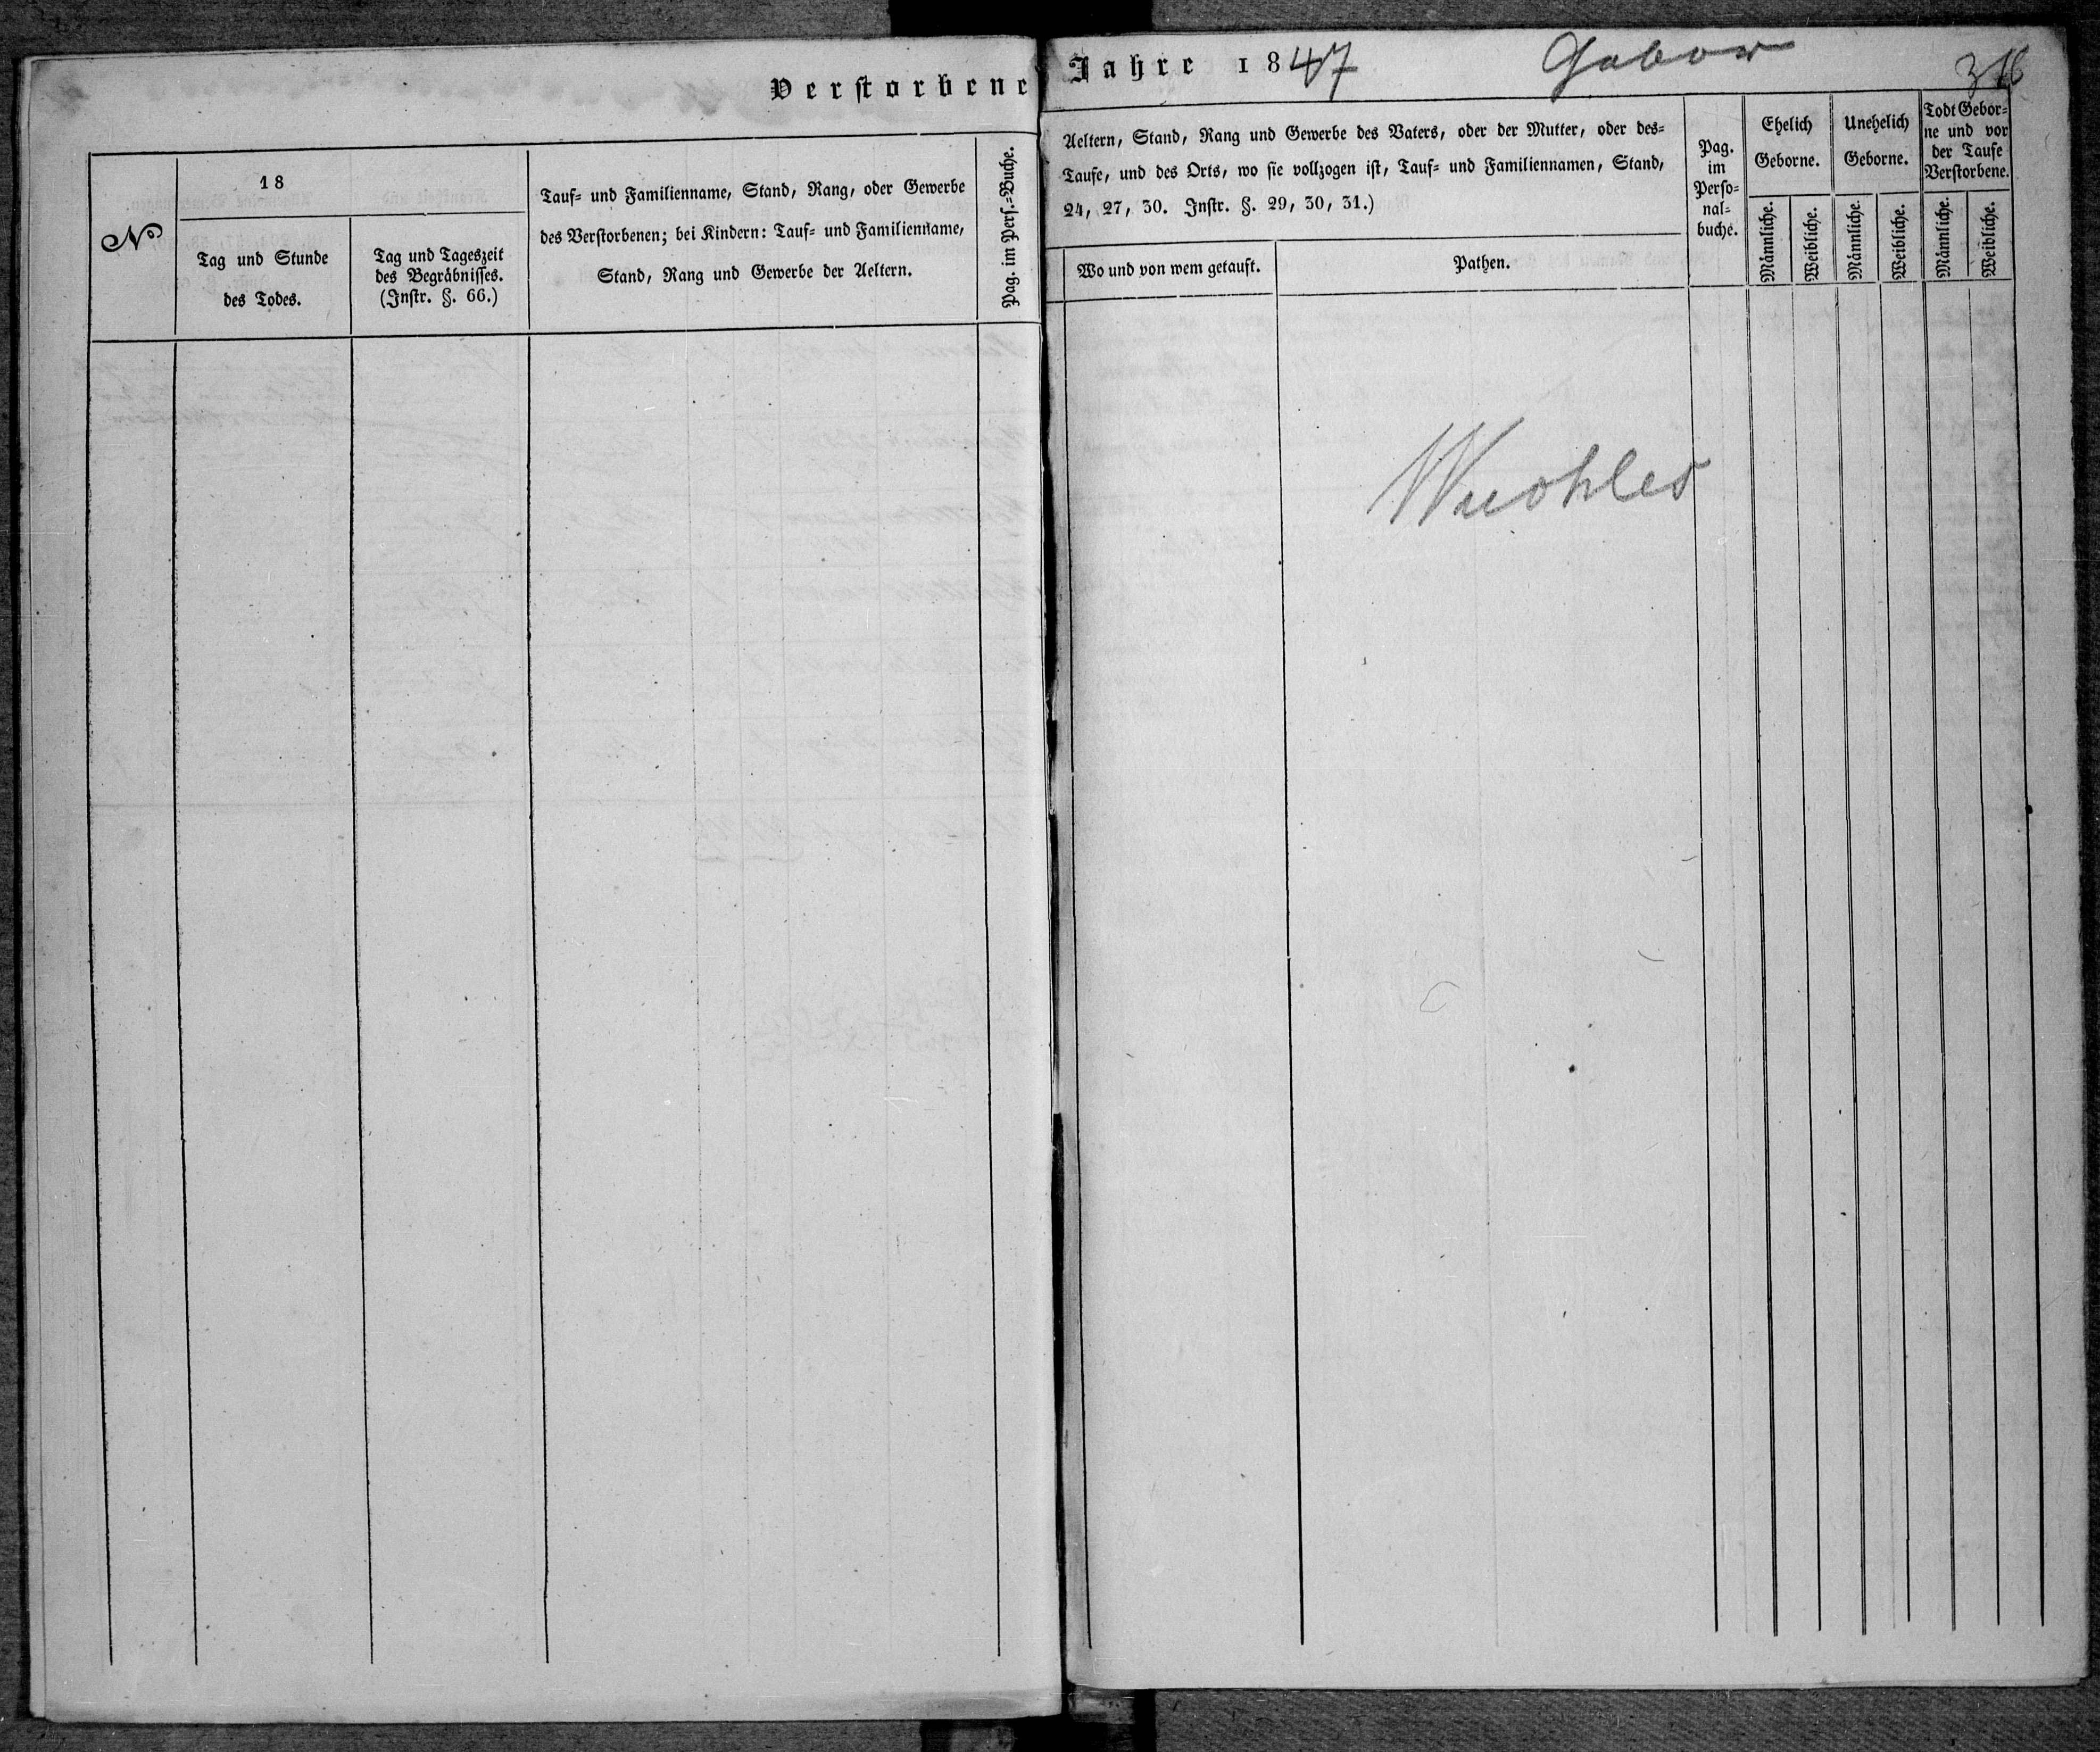 Verstorbene
N°
18
Tag und Stunde
des Todes.
Tag und Tageszeit
des Begräbnisses.
(Instr. §. 66.)
Tauf- und Familienname, Stand, Rang, oder Gewerbe
des Verstorbenen; bei Kindern: Tauf- und Familienname,
Stand, Rang und Gewerbe der Aeltern.
Pag. im Pers.-Buche.
Jahre 1847
Aeltern, Stand, Rang und Gewerbe des Vaters, oder der Mutter, oder des-
Taufe, und des Orts, wo sie vollzogen ist, Tauf- und Familiennamen, Stand,
24, 27, 30. Instr. §. 29, 30, 31.)
Wo und von wem getauft.
Pathen.
Pag.
im
Perso-
nal-
buche.
Ehelich
Geborne.
Männliche.
Weibliche.
Unehelich
Geborne.
Männliche.
Weibliche.
Todt Gebor-
ne und vor
der Taufe
Verstorbene.
Männliche.
Weibliche.